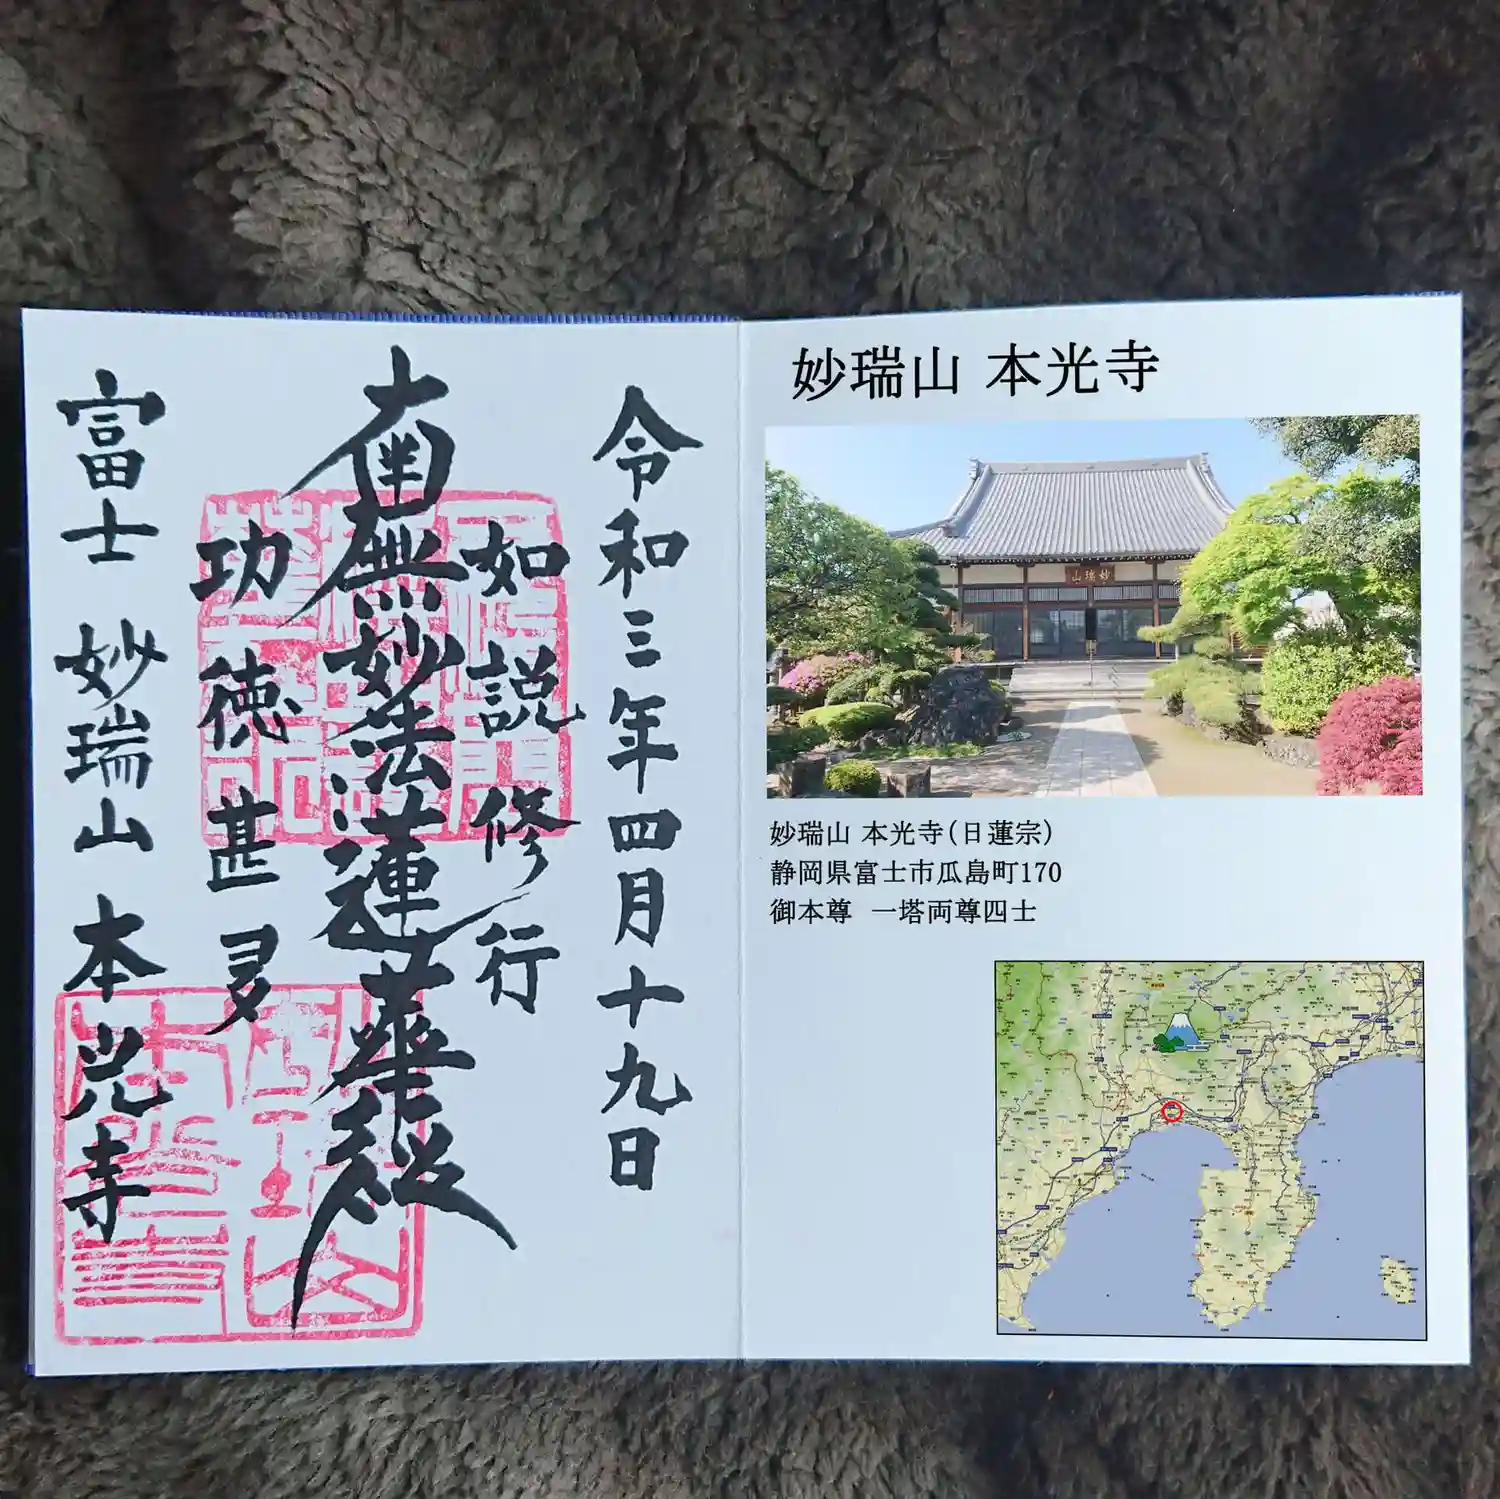 令和三年四月十九日
如説修行
南無妙法蓮華経
功徳甚多
富士 妙瑞山 本光寺
妙瑞山 本光寺
山瑞妙
妙瑞山 本光寺(日蓮宗)
静岡県富士市瓜島町170
御本尊 一塔両尊四士